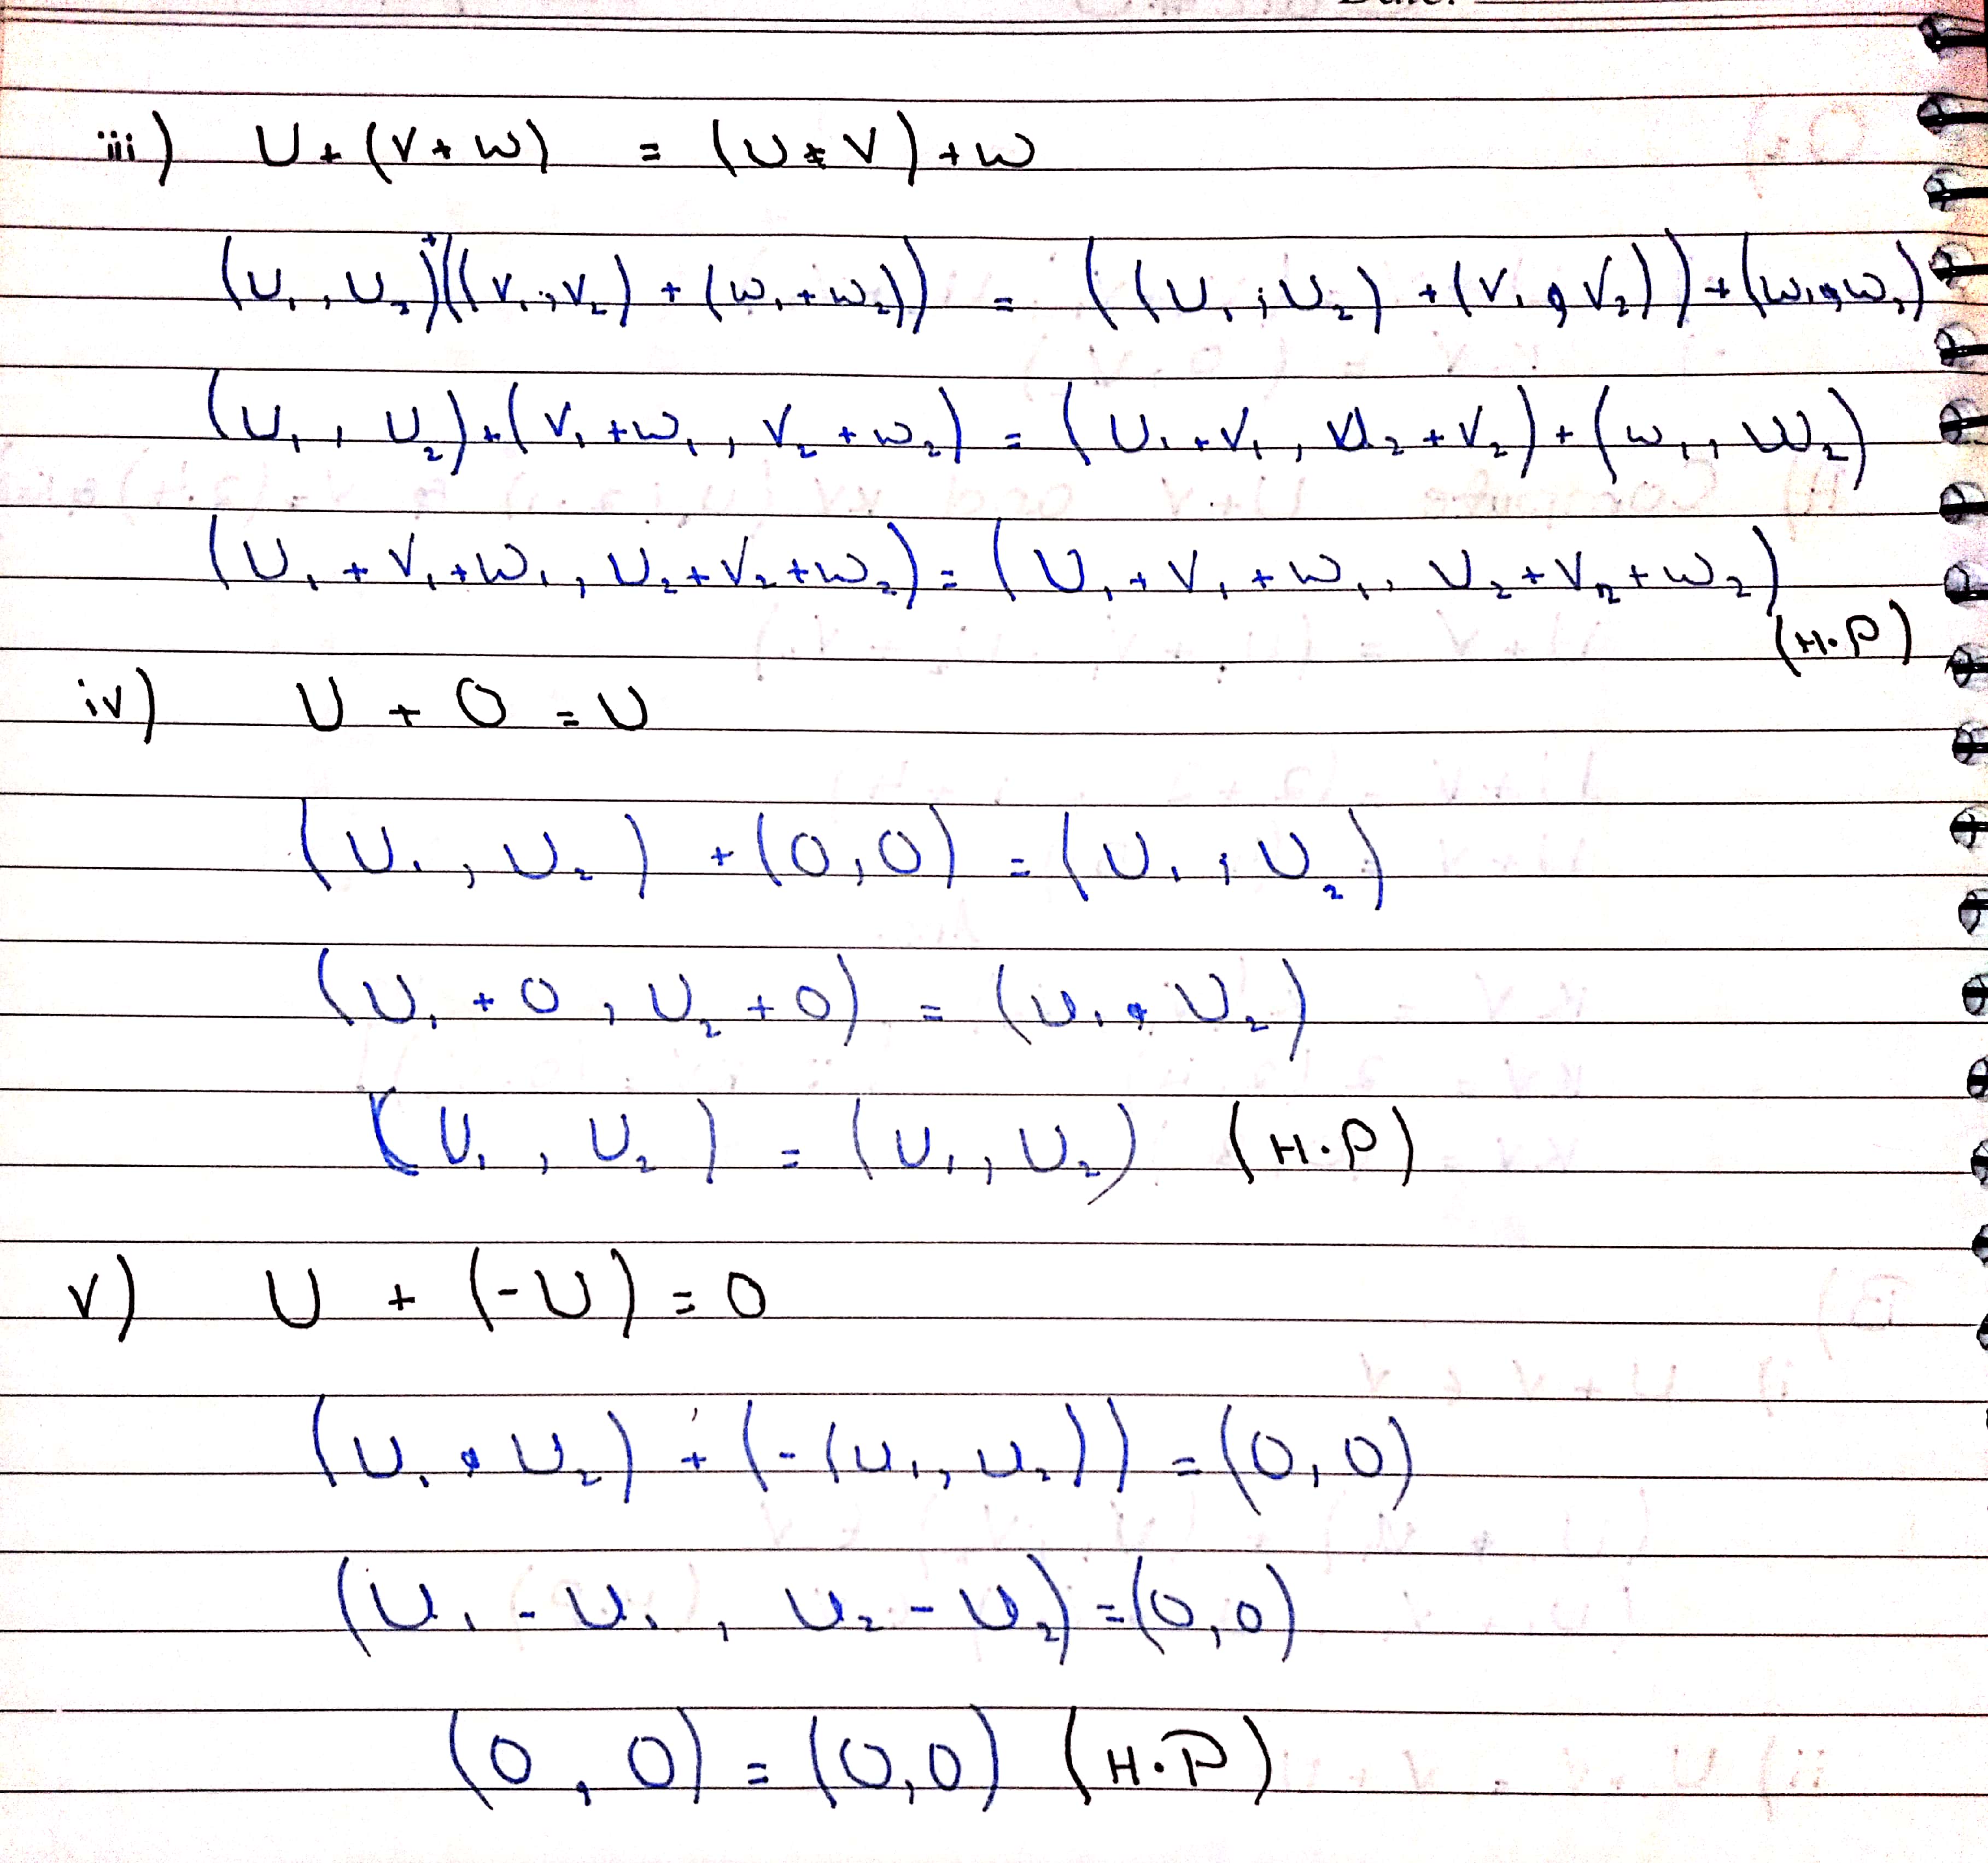 iii) U + (V + W) = (U + V) + W
(U₁, U₂)+((V₁, V₂) + (W₁ + W₂)) = ((U₁, U₂) + (V₁, V₂)) + (W₁, W₂)
(U₁, U₂) + (V₁ + W₁, V₂ + W₂) = (U₁ + V₁, U₂ + V₂) + (W₁, W₂)
(U₁ + V₁ + W₁, U₂ + V₂ + W₂) = (U₁ + V₁ + W₁, U₂ + V₂ + W₂)
(H.P)
iv) U + O = U
(U₁, U₂) + (0, 0) = (U₁, U₂)
(U₁ + 0, U₂ + 0) = (U₁, U₂)
(U₁, U₂) = (U₁, U₂) (H.P)
v) U + (-U) = 0
(U₁, U₂) + (-(U₁, U₂)) = (0, 0)
(U₁ - U₁, U₂ - U₂) = (0, 0)
(0, 0) = (0, 0) (H.P)